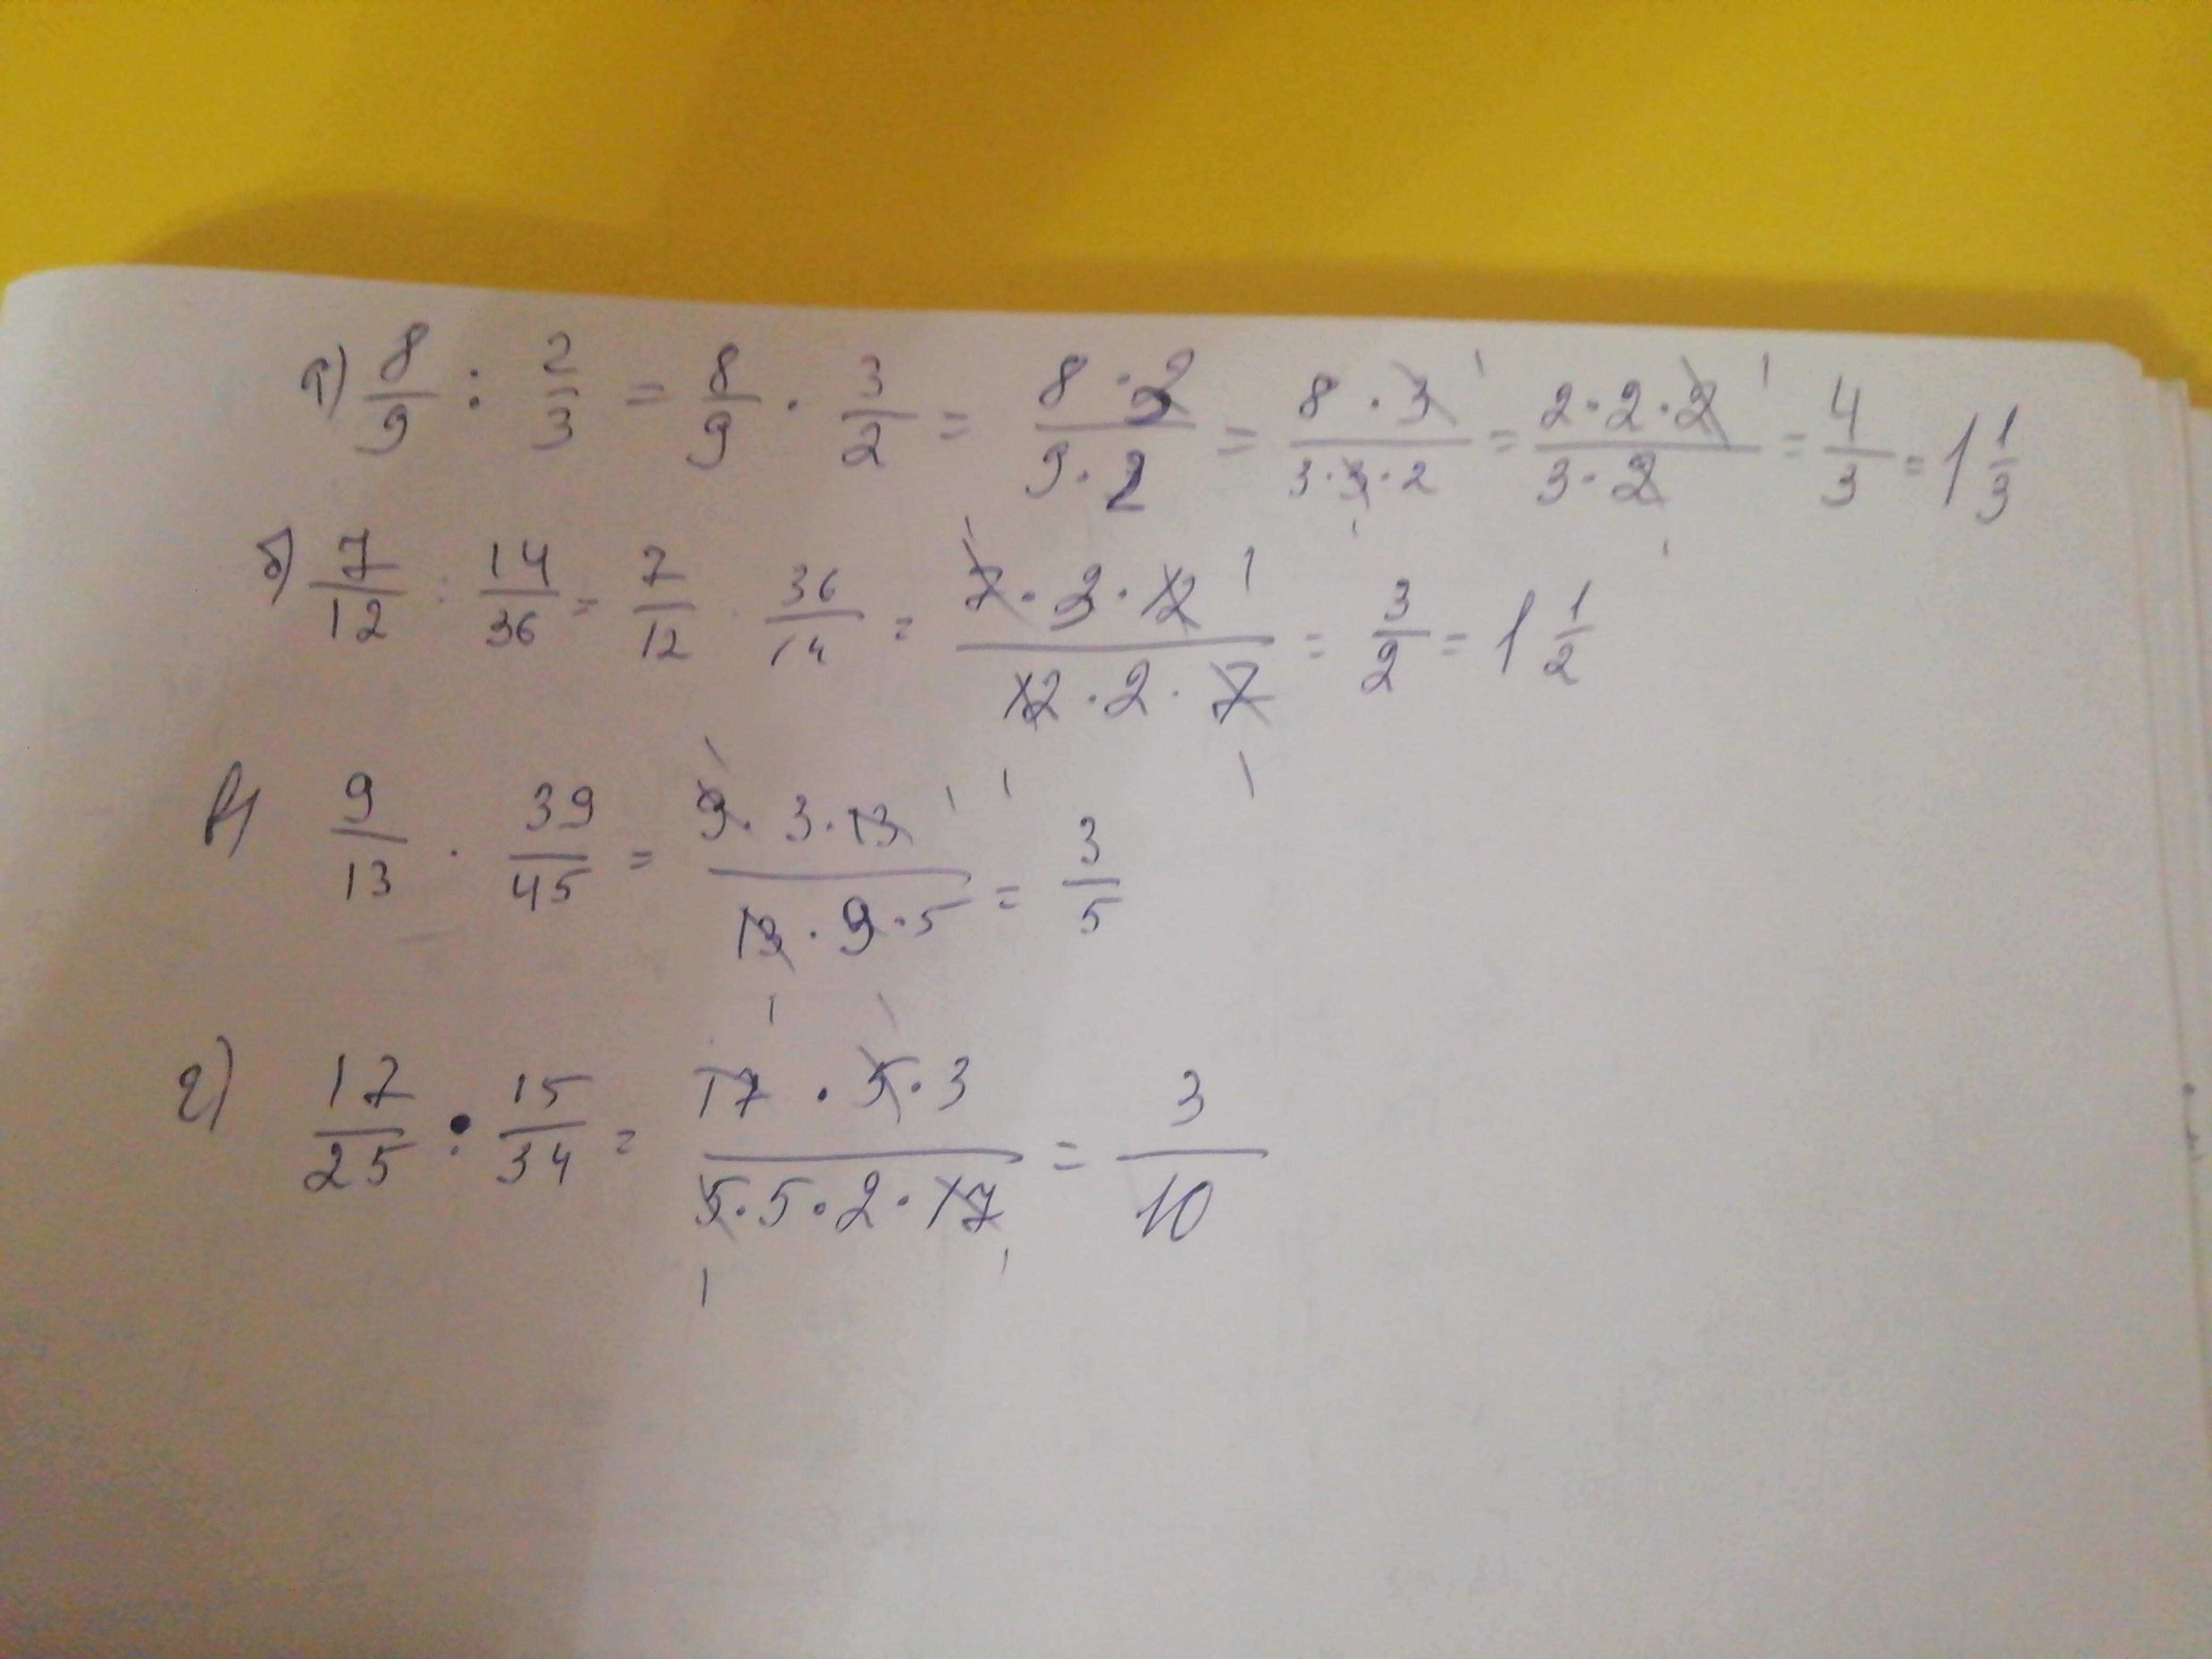 а) 8/9 : 2/3 = 8/9 · 3/2 = 8·3/9·2 = 8·3/3·3·2 = 2·2·2/3·2 = 4/3 = 1 1/3
б) 7/12 : 14/36 = 7/12 · 36/14 = 7·3·12/12·2·7 = 3/2 = 1 1/2
в) 9/13 · 39/45 = 9·3·13/13·9·5 = 3/5
г) 17/25 · 15/34 = 17·5·3/5·5·2·17 = 3/10